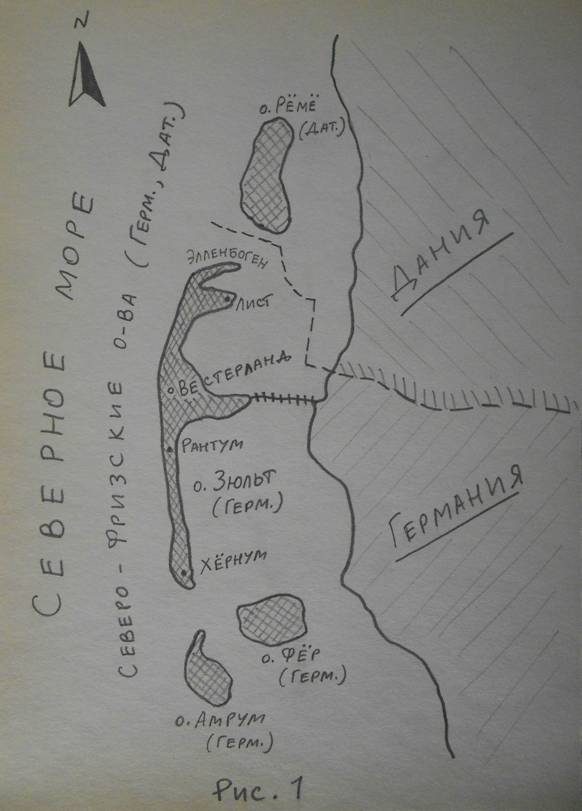 N
СЕВЕРНОЕ МОРЕ
СЕВЕРО-ФРИЗСКИЕ О-ВА (ГЕРМ., ДАТ.)
о. РЁМЁ
(ДАТ.)
ДАНИЯ
ЭЛЛЕНБОГЕН
ЛИСТ
ВЕСТЕРЛАНД
РАНТУМ
о. ЗЮЛЬТ
(ГЕРМ.)
ГЕРМАНИЯ
ХЁРНУМ
о. ФЁР
(ГЕРМ.)
о. АМРУМ
(ГЕРМ.)
Рис. 1